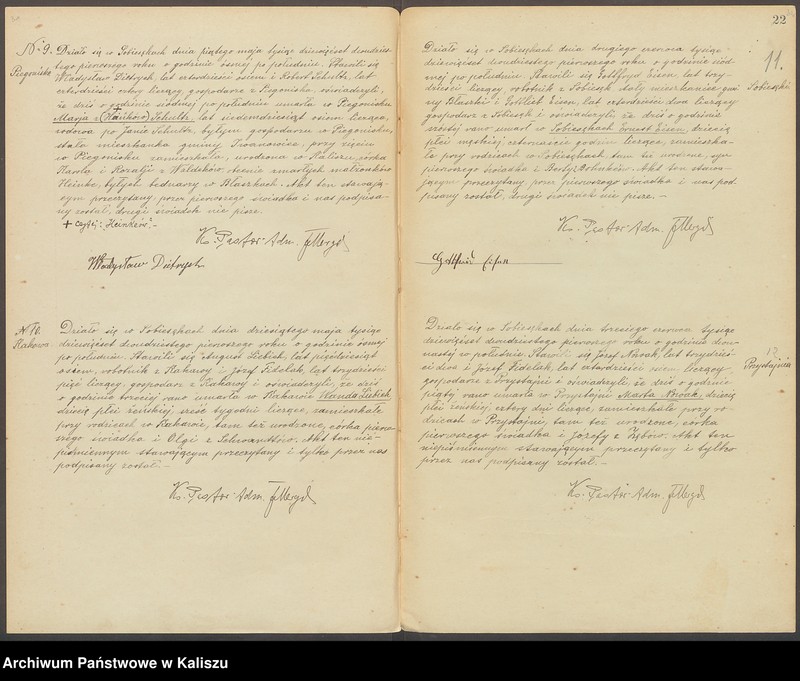 22
N: 9.
Piegonisko
Działo się w Sobieszkach dnia piątego maja tysiąc dziewięćset dwudzies-
tego pierwszego roku o godzinie ósmej po południu. Stawili się
Władysław Ditrych, lat czterdzieści ośiem i Robert Schultz, lat
czterdzieści cztery liczący, gospodarze z Piegoniska, oświadczyli,
że dziś o godzinie siódmej po południu umarła w Piegonisku
Marja z (Hanków) Schultz, lat siedemdziesiąt ośiem licząca,
wdowa po Janie Schultz, byłym gospodarzu w Piegonisku,
stała mieszkanka gminy Iwanowice, przy życiu
w Piegonisku zamieszkała, urodzona w Kaliszu, córka
Karola i Rozalji z Waldeków, obecnie zmarłych małżonków
Heinke, byłych w Błaszkach. Akt ten stawają-
cym przeczytany, przez pierwszego świadka i nas podpisa-
ny został, drugi świadek nie pisze.
+ czytaj: Heinków. -
Ks. Pastor-Adm.
Władysław Ditrych
N. 10.
Rakowa.
Działo się w Sobieszkach dnia dziesiątego maja tysiąc
dziewięćset dwudziestego pierwszego roku o godzinie ósmej
po południu. Stawili się August Liebich, lat pięćdziesiąt
ośiem, robotnik z Rakowy i Józef Fidelak, lat trzydzieści
pięć liczący, gospodarz z Rakowy i oświadczyli, że dziś
o godzinie trzeciej rano umarła w Rakowie Wanda Liebich,
dziecię płci żeńskiej, sześć tygodni liczące, zamieszkałe
przy rodzicach w Rakowie, tam też urodzone, córka pierw-
szego świadka i Olgi z Schwandtów. Akt ten nie-
piśmiennym stawającym przeczytany i tylko przez nas
podpisany został. -
Ks. Pastor-Adm.
11.
Sobieszki
Działo się w Sobieszkach dnia drugiego czerwca tysiąc
dziewięćset dwudziestego pierwszego roku o godzinie siód-
mej po południu. Stawili się Gottfryd Eisen, lat trzy-
dzieści liczący, robotnik z Sobiesęk stały mieszkaniec gmi-
ny Błaszki i Gottlieb Eisen, lat czterdzieści dwa liczący
gospodarz z Sobiesęk i oświadczyli, że dziś o godzinie
szóstej rano umarł w Sobieszkach Ernest Eisen, dziecię
płci męskiej, czternaście godzin liczące, zamieszka-
łe przy rodzicach w Sobieszkach, tam też urodzone, syn
pierwszego świadka i Berty Bohnków. Akt ten stawa-
jącym przeczytany, przez pierwszego świadka i nas pod-
pisany został, drugi świadek nie pisze. -
Ks. Pastor-Adm.
Gottfried Eisen
12.
Przystajnia
Działo się w Sobieszkach dnia trzeciego czerwca tysiąc
dziewięćset dwudziestego pierwszego roku o godzinie dwu-
nastej w południe. Stawili się Józef Nowak, lat trzydzieś-
ci dwa i Józef Fidelak, lat czterdzieści liczący,
gospodarze z Przystajni i oświadczyli, że dziś o godzinie
piątej rano umarła w Przystajni Marta Nowak, dziecię
płci żeńskiej, cztery dni liczące, zamieszkałe przy ro-
dzicach w Przystajni, tam też urodzone, córka
pierwszego świadka i Józefy z Zębów. Akt ten
niepiśmiennym stawającym przeczytany i tylko
przez nas podpisany został. -
Ks. Pastor-Adm.
Archiwum Państwowe w Kaliszu